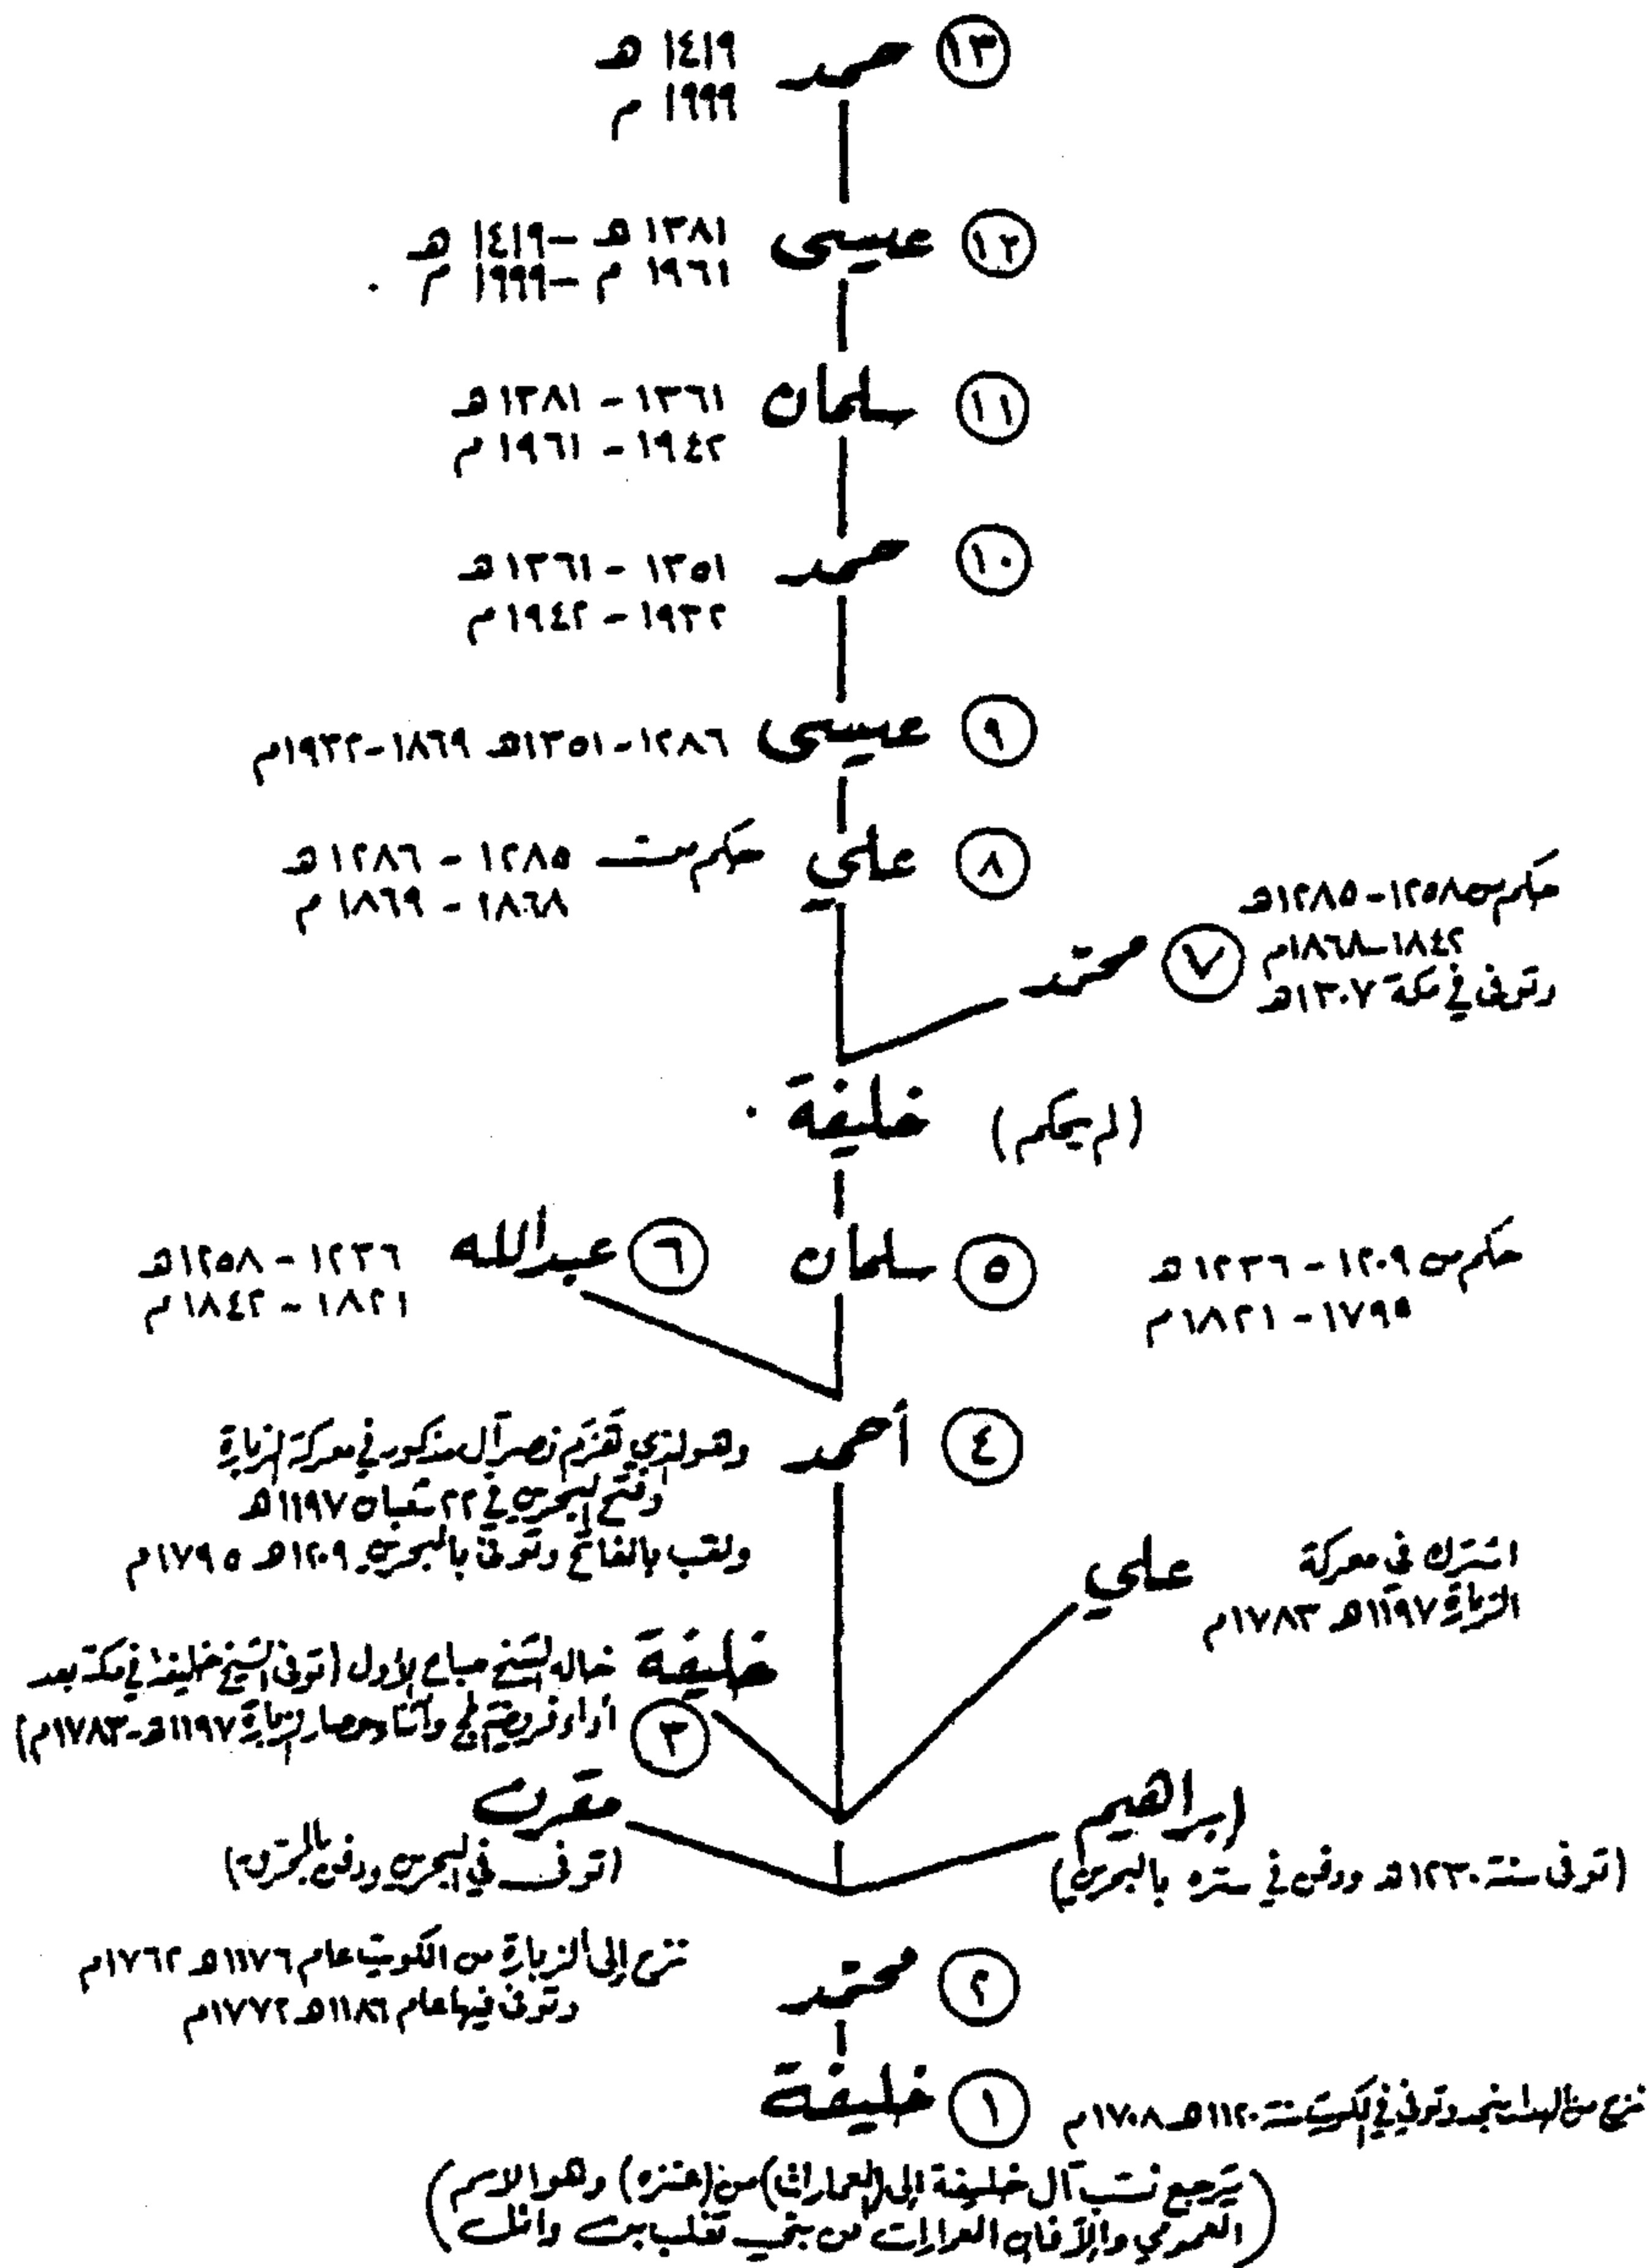 ١٣ حمد ١٤١٩ هـ
١٩٩٩ م
١٢ عيسى ١٣٨١ هـ - ١٤١٩ هـ
١٩٦١ م - ١٩٩٩ م
١١ سلمان ١٣٦١ - ١٣٨١ هـ
١٩٤٢ - ١٩٦١ م
١٠ حمد ١٣٥١ - ١٣٦١ هـ
١٩٣٢ - ١٩٤٢ م
٩ عيسى ١٢٨٦ - ١٣٥١ هـ ١٨٦٩ - ١٩٣٢ م
٨ علي حكم من ١٢٨٥ - ١٢٨٦ هـ
١٨٦٨ - ١٨٦٩ م
٧ محمد
حكم من ١٢٥٨ - ١٢٨٥ هـ
١٨٤٢ - ١٨٦٨ م
وتوفى في مكة ١٣٠٧ هـ
خليفة (لم يحكم)
٥ سلمان
حكم من ١٢٠٩ - ١٢٣٦ هـ
١٧٩٥ - ١٨٢١ م
٦ عبدالله ١٢٣٦ - ١٢٥٨ هـ
١٨٢١ - ١٨٤٢ م
٤ أحمد وهو الذي هزم نصر آل مذكور في معركة الزبارة
وفتح البحرين في ٢٢ شعبان ١١٩٧ هـ
ولقب بالفاتح وتوفى بالبحرين ١٢٠٩ هـ ١٧٩٥ م
علي اشترك في معركة
الزبارة ١١٩٧ هـ ١٧٨٣ م
٣ خليفة خال الشيخ صباح الأول (توفى الشيخ خليفة في مكة بعد
أداء فريضة الحج وأثناء حصار الزبارة ١١٩٧ هـ - ١٧٨٣ م)
مقرن
(توفى في البحرين ودفن بالمحرق)
ابراهيم
(توفى سنة ١٢٣٠ هـ ودفن في ستره بالبحرين)
٢ محمد نزح إلى الزبارة من الكويت عام ١١٧٦ هـ ١٧٦٢ م
وتوفى فيها عام ١١٨٦ هـ ١٧٧٢ م
١ خليفة
نزح من الهدار بنجد وتوفي في الكويت سنة ١١٢٠ هـ ١٧٠٨ م
(يرجع نسب آل خليفة إلى (العمارات) من (عنزه) وهو الاسم
العمومي من بني تغلب بن وائل)